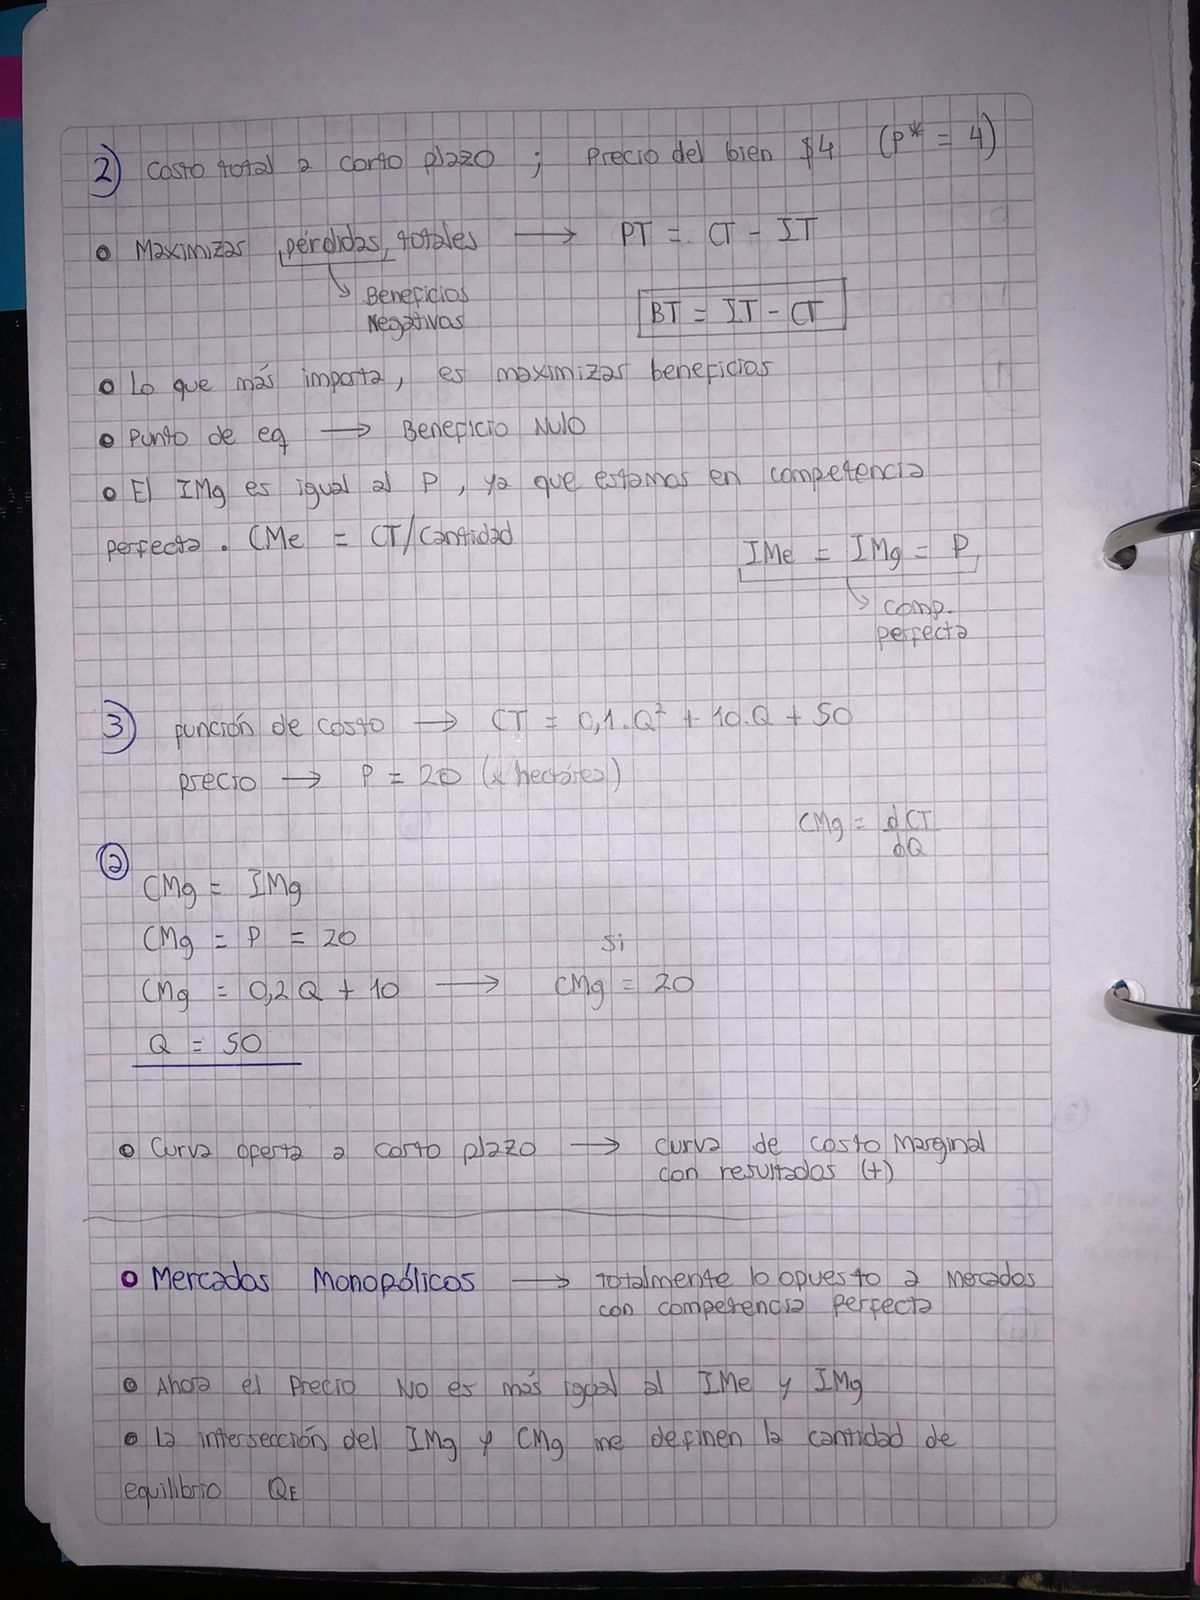 2) Costo total a corto plazo ; Precio del bien $4 (P* = 4)
• Maximizar pérdidas totales → PT = CT - IT
↳ Beneficios
Negativos
BT = IT - CT
• Lo que más importa, es maximizar beneficios
• Punto de eq → Beneficio Nulo
• El IMg es igual al P, ya que estamos en competencia
perfecta. CMe = CT/Cantidad
IMe = IMg = P
↳ comp.
perfecta
3) función de costo → CT = 0,1.Q² + 10.Q + 50
precio → P = 20 (x hectárea)
CMg = dCT
dQ
a
CMg = IMg
CMg = P = 20
si
CMg = 0,2Q + 10 → CMg = 20
Q = 50
• Curva oferta a corto plazo → curva de costo Marginal
con resultados (+)
• Mercados Monopólicos → Totalmente lo opuesto a mercados
con competencia perfecta
• Ahora el Precio NO es más igual al IMe y IMg
• La intersección del IMg y CMg me definen la cantidad de
equilibrio QE